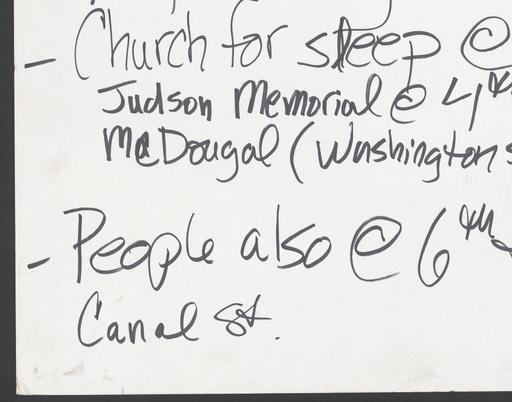 - Church for sleep @
Judson Memorial @ 4th
McDougal (Washington
- People also @ 6th
Canal St.